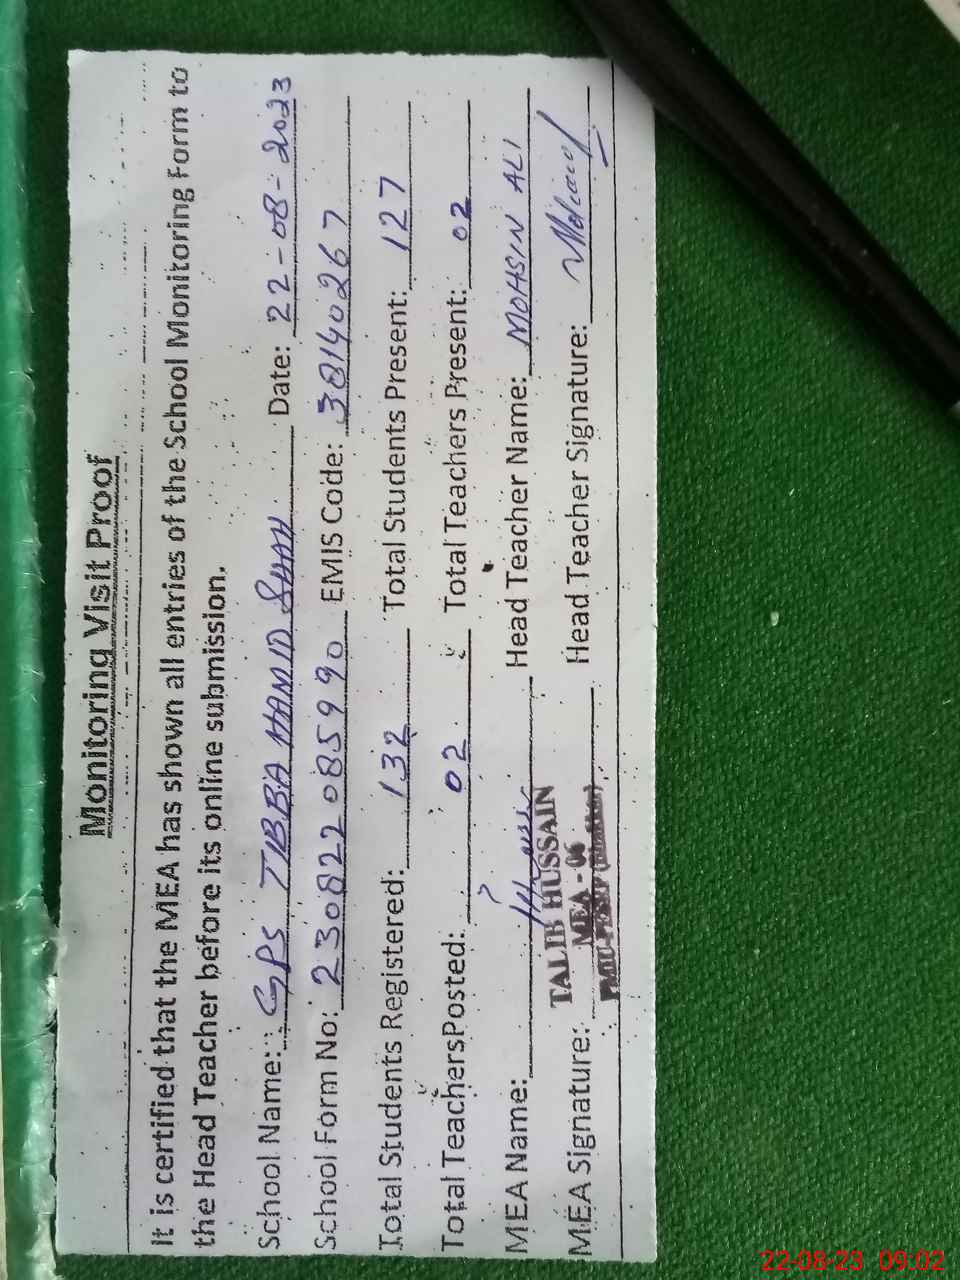 Monitoring Visit Proof
It is certified that the MEA has shown all entries of the School Monitoring Form to
the Head Teacher before its online submission.
School Name: GPS TIBBA HAMID SHAH Date: 22-08-2023
School Form No: 230822085990 EMIS Code: 38140267
Total Students Registered: 132 Total Students Present: 127
Total TeachersPosted: 02 Total Teachers Present: 02
MEA Name: Head Teacher Name: MOHSIN ALI
MEA Signature: Head Teacher Signature:
TALIB HUSSAIN
MEA - 06
22-08-23 09:02